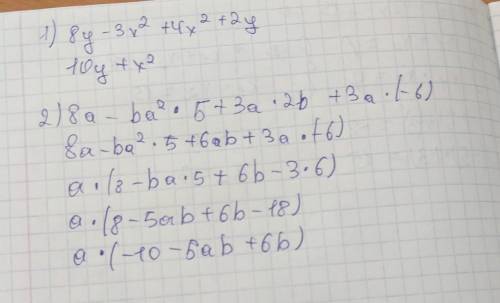 1) 8y - 3x² + 4x² + 2y
10y + x²
2) 8a - ba² · 5 + 3a · 2b + 3a · (-6)
8a - ba² · 5 + 6ab + 3a · (-6)
a · (8 - ba · 5 + 6b - 3 · 6)
a · (8 - 5ab + 6b - 18)
a · (-10 - 5ab + 6b)